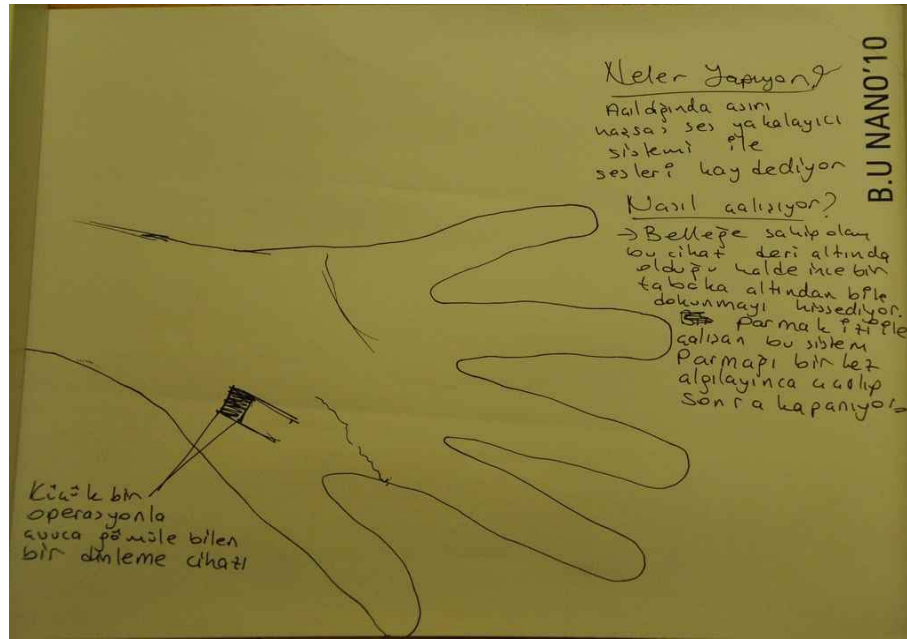 Neler Yapıyor?
Açıldığında aşırı
hassas ses yakalayıcı
sistemi ile
sesleri kaydediyor
Nasıl çalışıyor?
→ Belleğe sahip olan
bu cihat deri altında
olduğu halde ince bir
tabaka altından bile
dokunmayı hissediyor.
Parmak izi ile
çalışan bu sistem
Parmağı bir kez
algılayınca açılıp
sonra kapanıyor.
B.U NANO'10
Küçük bir
operasyonla
avuca gömüle bilen
bir dinleme cihazı